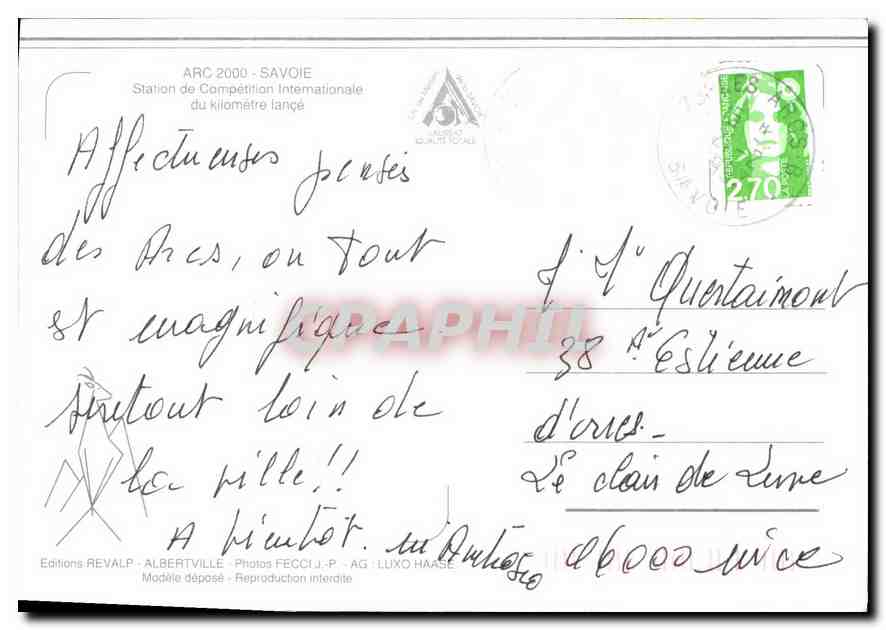 ARC 2000 - SAVOIE
Station de Compétition Internationale
du kilomètre lancé
LAUREAT
QUALITE TOTALE
REPUBLIQUE FRANÇAISE
LA POSTE
2,70
LES ARCS
SAVOIE
Affectueuses pensés
des Arcs, ou tout
est magnifique
surtout loin de
la ville!!
A bientôt.
Quertaimont
38 Av Estienne
d'orves -
Le clair de Lune
06000 nice
CPAPHIL
Editions REVALP - ALBERTVILLE - Photos FECCI J.-P. - AG : LUXO HAASE
Modèle déposé - Reproduction interdite